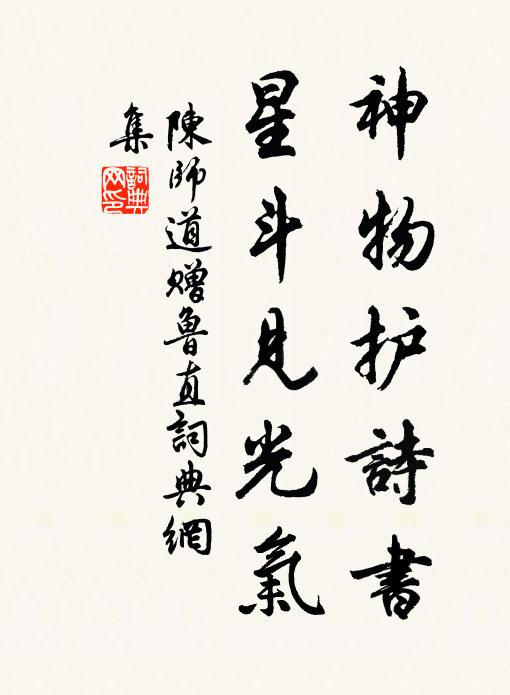 神物护詩書
星斗見光氣
陳師道贈魯直詞典網
集
詞典
网印